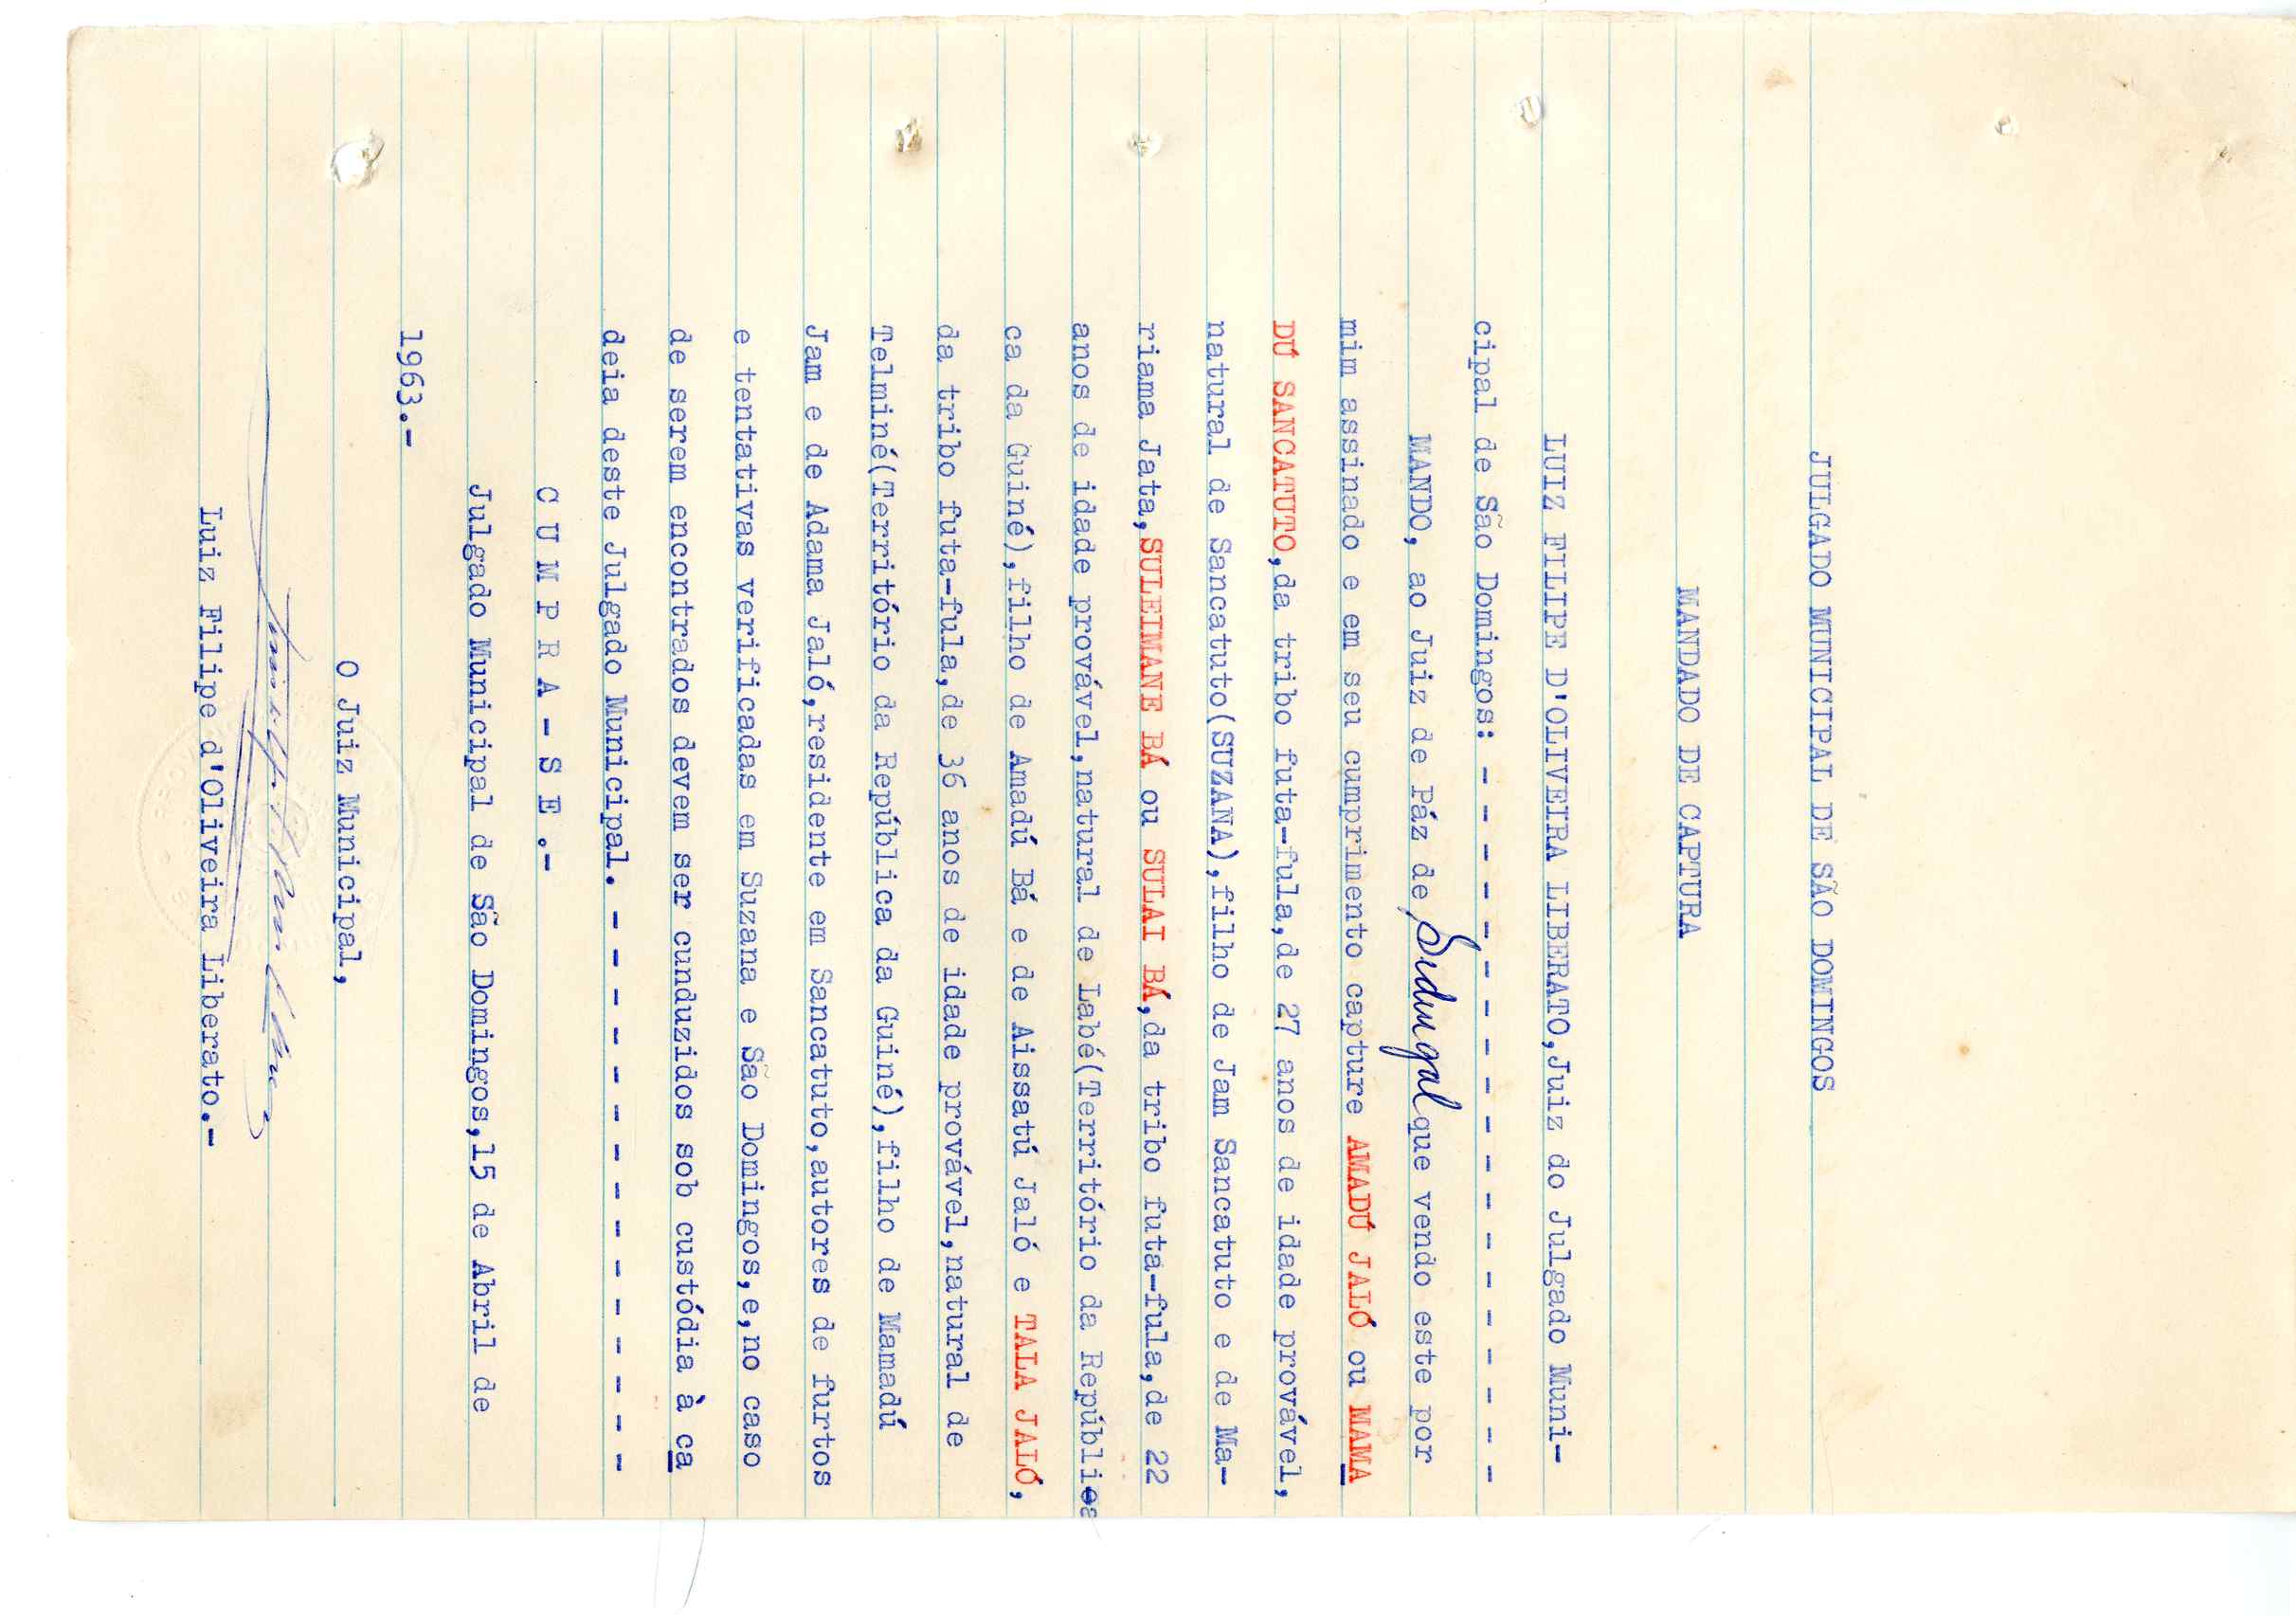 JULGADO MUNICIPAL DE SÃO DOMINGOS
MANDADO DE CAPTURA
LUIZ FILIPE D'OLIVEIRA LIBERATO,Juiz do Julgado Muni-
cipal de São Domingos: - - - - - - - - - - - - - - - - - - -
MANDO, ao Juiz de Páz de Sidengal que vendo este por
mim assinado e em seu cumprimento capture AMADÚ JALÓ ou MAMA
DÚ SANCATUTO,da tribo futa-fula,de 27 anos de idade provável,
natural de Sancatuto(SUZANA),filho de Jam Sancatuto e de Ma-
riama Jata,SULEIMANE BÁ ou SULAI BÁ,da tribo futa-fula,de 22
anos de idade provável,natural de Labé(Território da República
ca da Guiné),filho de Amadú Bá e de Aissatú Jaló e TALA JALÓ,
da tribo futa-fula,de 36 anos de idade provável,natural de
Telminé(Território da República da Guiné),filho de Mamadú
Jam e de Adama Jaló,residente em Sancatuto,autores de furtos
e tentativas verificadas em Suzana e São Domingos,e,no caso
de serem encontrados devem ser cunduzidos sob custódia à ca
deia deste Julgado Municipal. - - - - - - - - - - - - - -
C U M P R A - S E .-
Julgado Municipal de São Domingos,15 de Abril de
1963.-
O Juiz Municipal,
Luiz Filipe d'Oliveira Liberato.-